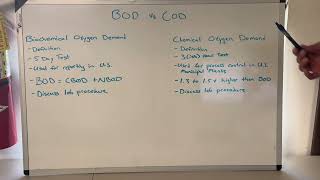 BOD vs COD
Biochemical Oxygen Demand
- Definition
- 5 Day Test
- Used for reporting in U.S.
- BOD = CBOD + NBOD
- Discuss lab procedure
Chemical Oxygen Demand
- Definition
- Test
- Used for process control in U.S.
Municipal Plants
- 1.3 to 1.5x higher than BOD
- Discuss Lab procedure